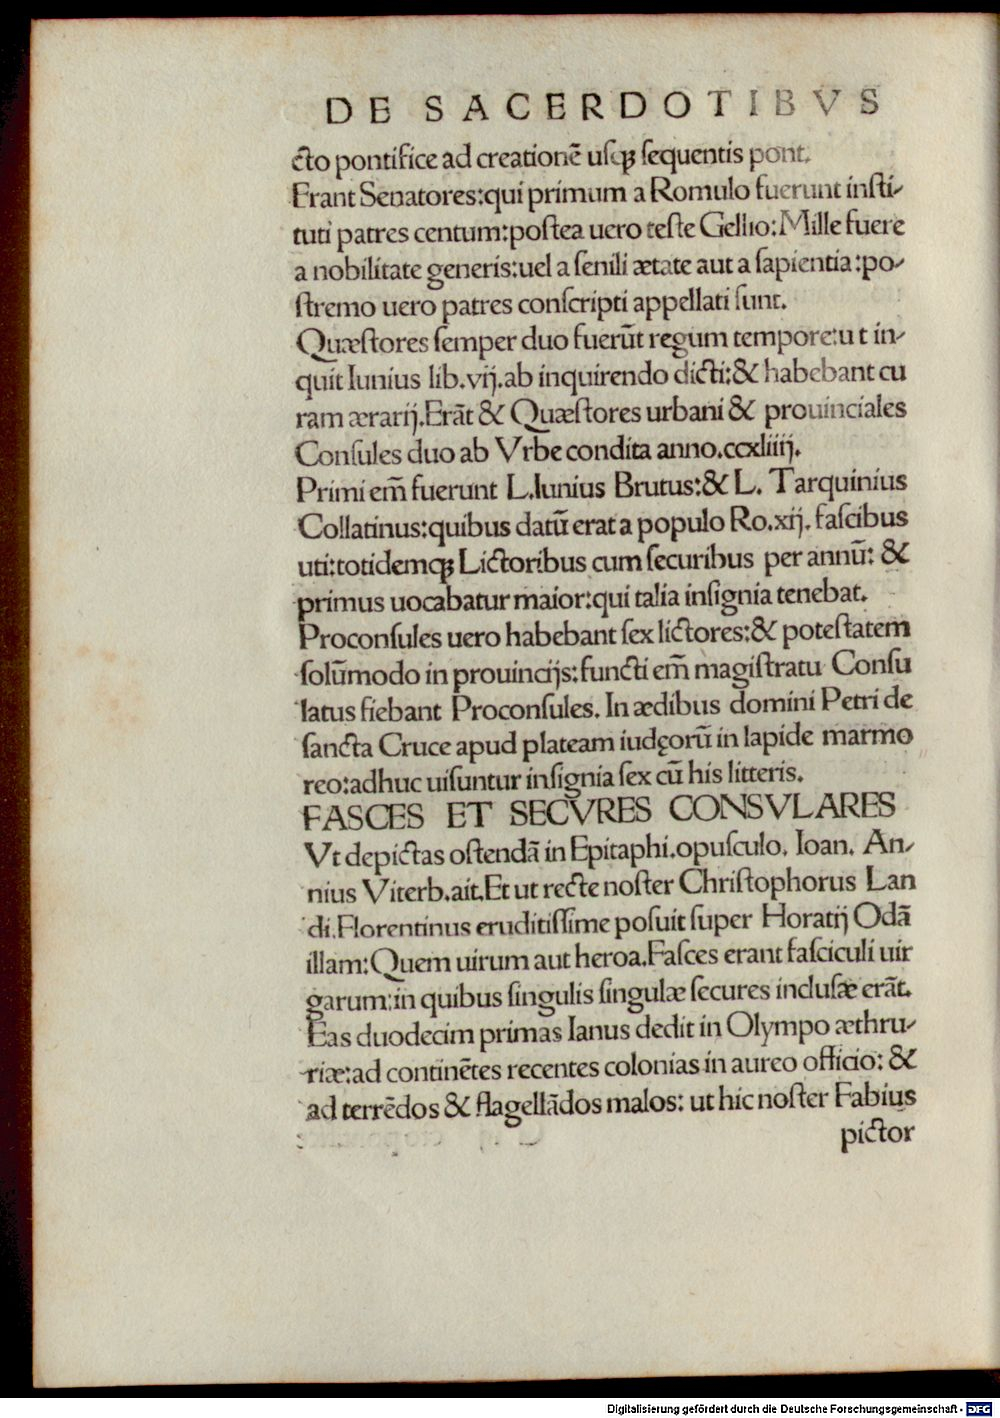 DE SACERDOTIBVS
cto pontifice ad creationē usqꝫ ſequentis pont.
Erant Senatores:qui primum a Romulo fuerunt inſti-
tuti patres centum:poſtea uero teſte Gellio:Mille fuere
a nobilitate generis:uel a ſenili ætate aut a ſapientia:po-
ſtremo uero patres conſcripti appellati ſunt.
Quæſtores ſemper duo fuerūt regum tempore:u t in-
quit Iunius lib.vij.ab inquirendo dicti:& habebant cu
ram ærarij.Erāt & Quæſtores urbani & prouinciales
Conſules duo ab Vrbe condita anno.ccxliiij.
Primi em̄ fuerunt L.Iunius Brutus:& L. Tarquinius
Collatinus:quibus datū erat a populo Ro.xij. faſcibus
uti:totidemqꝫ Lictoribus cum ſecuribus per annū: &
primus uocabatur maior:qui talia inſignia tenebat.
Proconſules uero habebant ſex lictores:& poteſtatem
ſolūmodo in prouincijs:functi em̄ magiſtratu Conſu
latus fiebant Proconſules. In ædibus domini Petri de
ſancta Cruce apud plateam iudęorū in lapide marmo
reo:adhuc uiſuntur inſignia ſex cū his litteris.
FASCES ET SECVRES CONSVLARES
Vt depictas oſtendā in Epitaphi.opuſculo. Ioan. An-
nius Viterb.ait.Et ut recte noſter Chriſtophorus Lan
di.Florentinus eruditiſſime poſuit ſuper Horatij Odā
illam:Quem uirum aut heroa.Faſces erant faſciculi uir
garum:in quibus ſingulis ſingulæ ſecures incluſæ erāt.
Eas duodecim primas Ianus dedit in Olympo æthru-
riæ:ad continētes recentes colonias in aureo officio: &
ad terrēdos & flagellādos malos: ut hic noſter Fabius
pictor
Digitalisierung gefördert durch die Deutsche Forschungsgemeinschaft - DFG